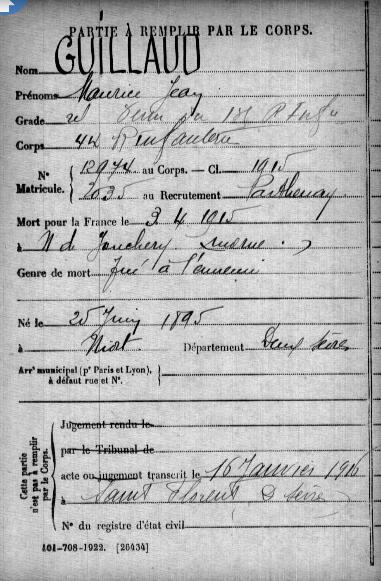 PARTIE À REMPLIR PAR LE CORPS.
Nom GUILLAUD
Prénoms Maurice Jean
Grade
Corps 44
N° Matricule. { 12974 au Corps. — Cl. 1915
2035 au Recrutement Parthenay
Mort pour la France le 3. 4 1915
à N de Jonchery
Genre de mort tué à l'ennemi
Né le 25 Juin 1895
à Niort Département Deux Sèvres
Arrt municipal (pr Paris et Lyon), à défaut rue et N°. {
Cette partie n'est pas à remplir par le Corps.
Jugement rendu le
par le Tribunal de
acte ou jugement transcrit le 16 Janvier 1916
à Saint Florent D Sèvres
N° du registre d'état civil
101-708-1922. [26434]